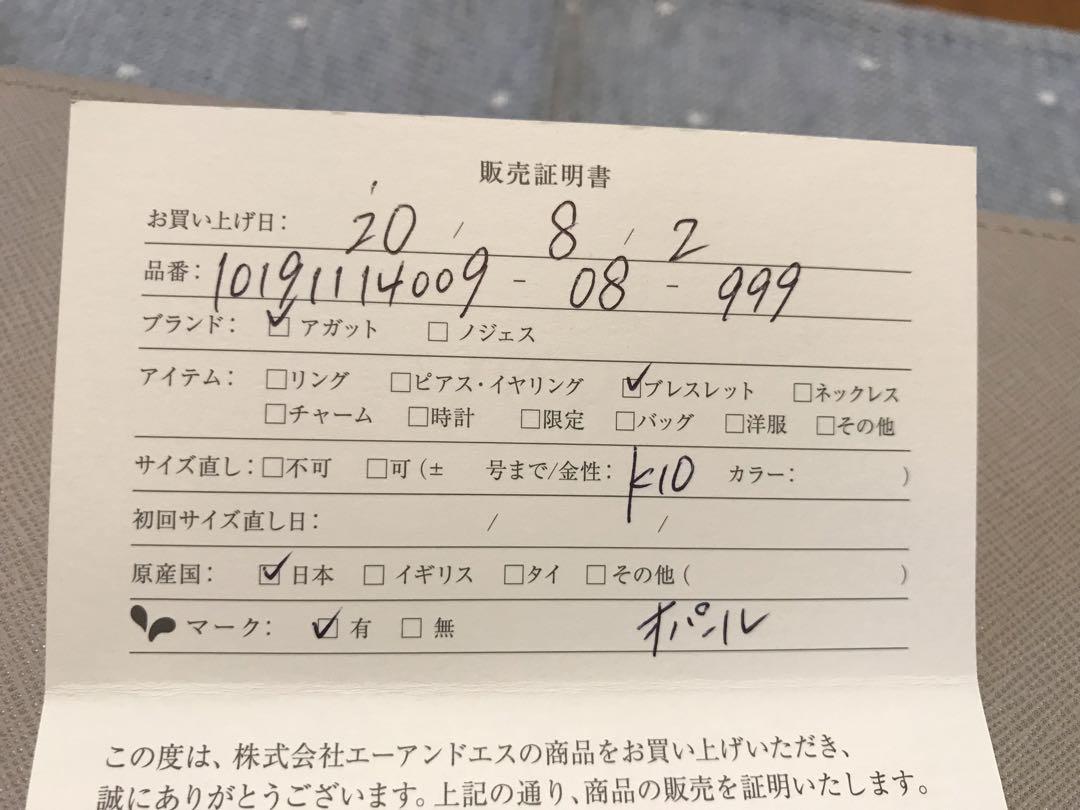 販売証明書
お買い上げ日: 20 / 8 / 2
品番: 10191114009 - 08 - 999
ブランド: ☑アガット □ノジェス
アイテム: □リング □ピアス・イヤリング ☑ブレスレット □ネックレス
□チャーム □時計 □限定 □バッグ □洋服 □その他
サイズ直し: □不可 □可 (± 号まで/金性: K10 カラー: )
初回サイズ直し日: / /
原産国: ☑日本 □イギリス □タイ □その他 ( )
マーク: ☑有 □無 オパール
この度は、株式会社エーアンドエスの商品をお買い上げいただき、
誠にありがとうございます。上記の通り、商品の販売を証明いたします。